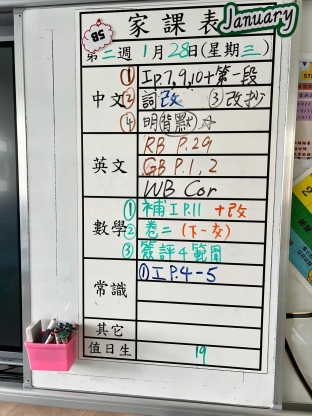 家課表 January
5B
第二週1月28日(星期三)
中文
① I p.7,9,10+第一段
② 詞改 ③改抄
④ 明(背默)☆
英文
RB P.29
GB P.1,2
WB Cor
數學
① 補I P.11 +改
② 卷二 (下一交)
③ 簽評4範圍
常識
① I P.4-5
其它
值日生 19